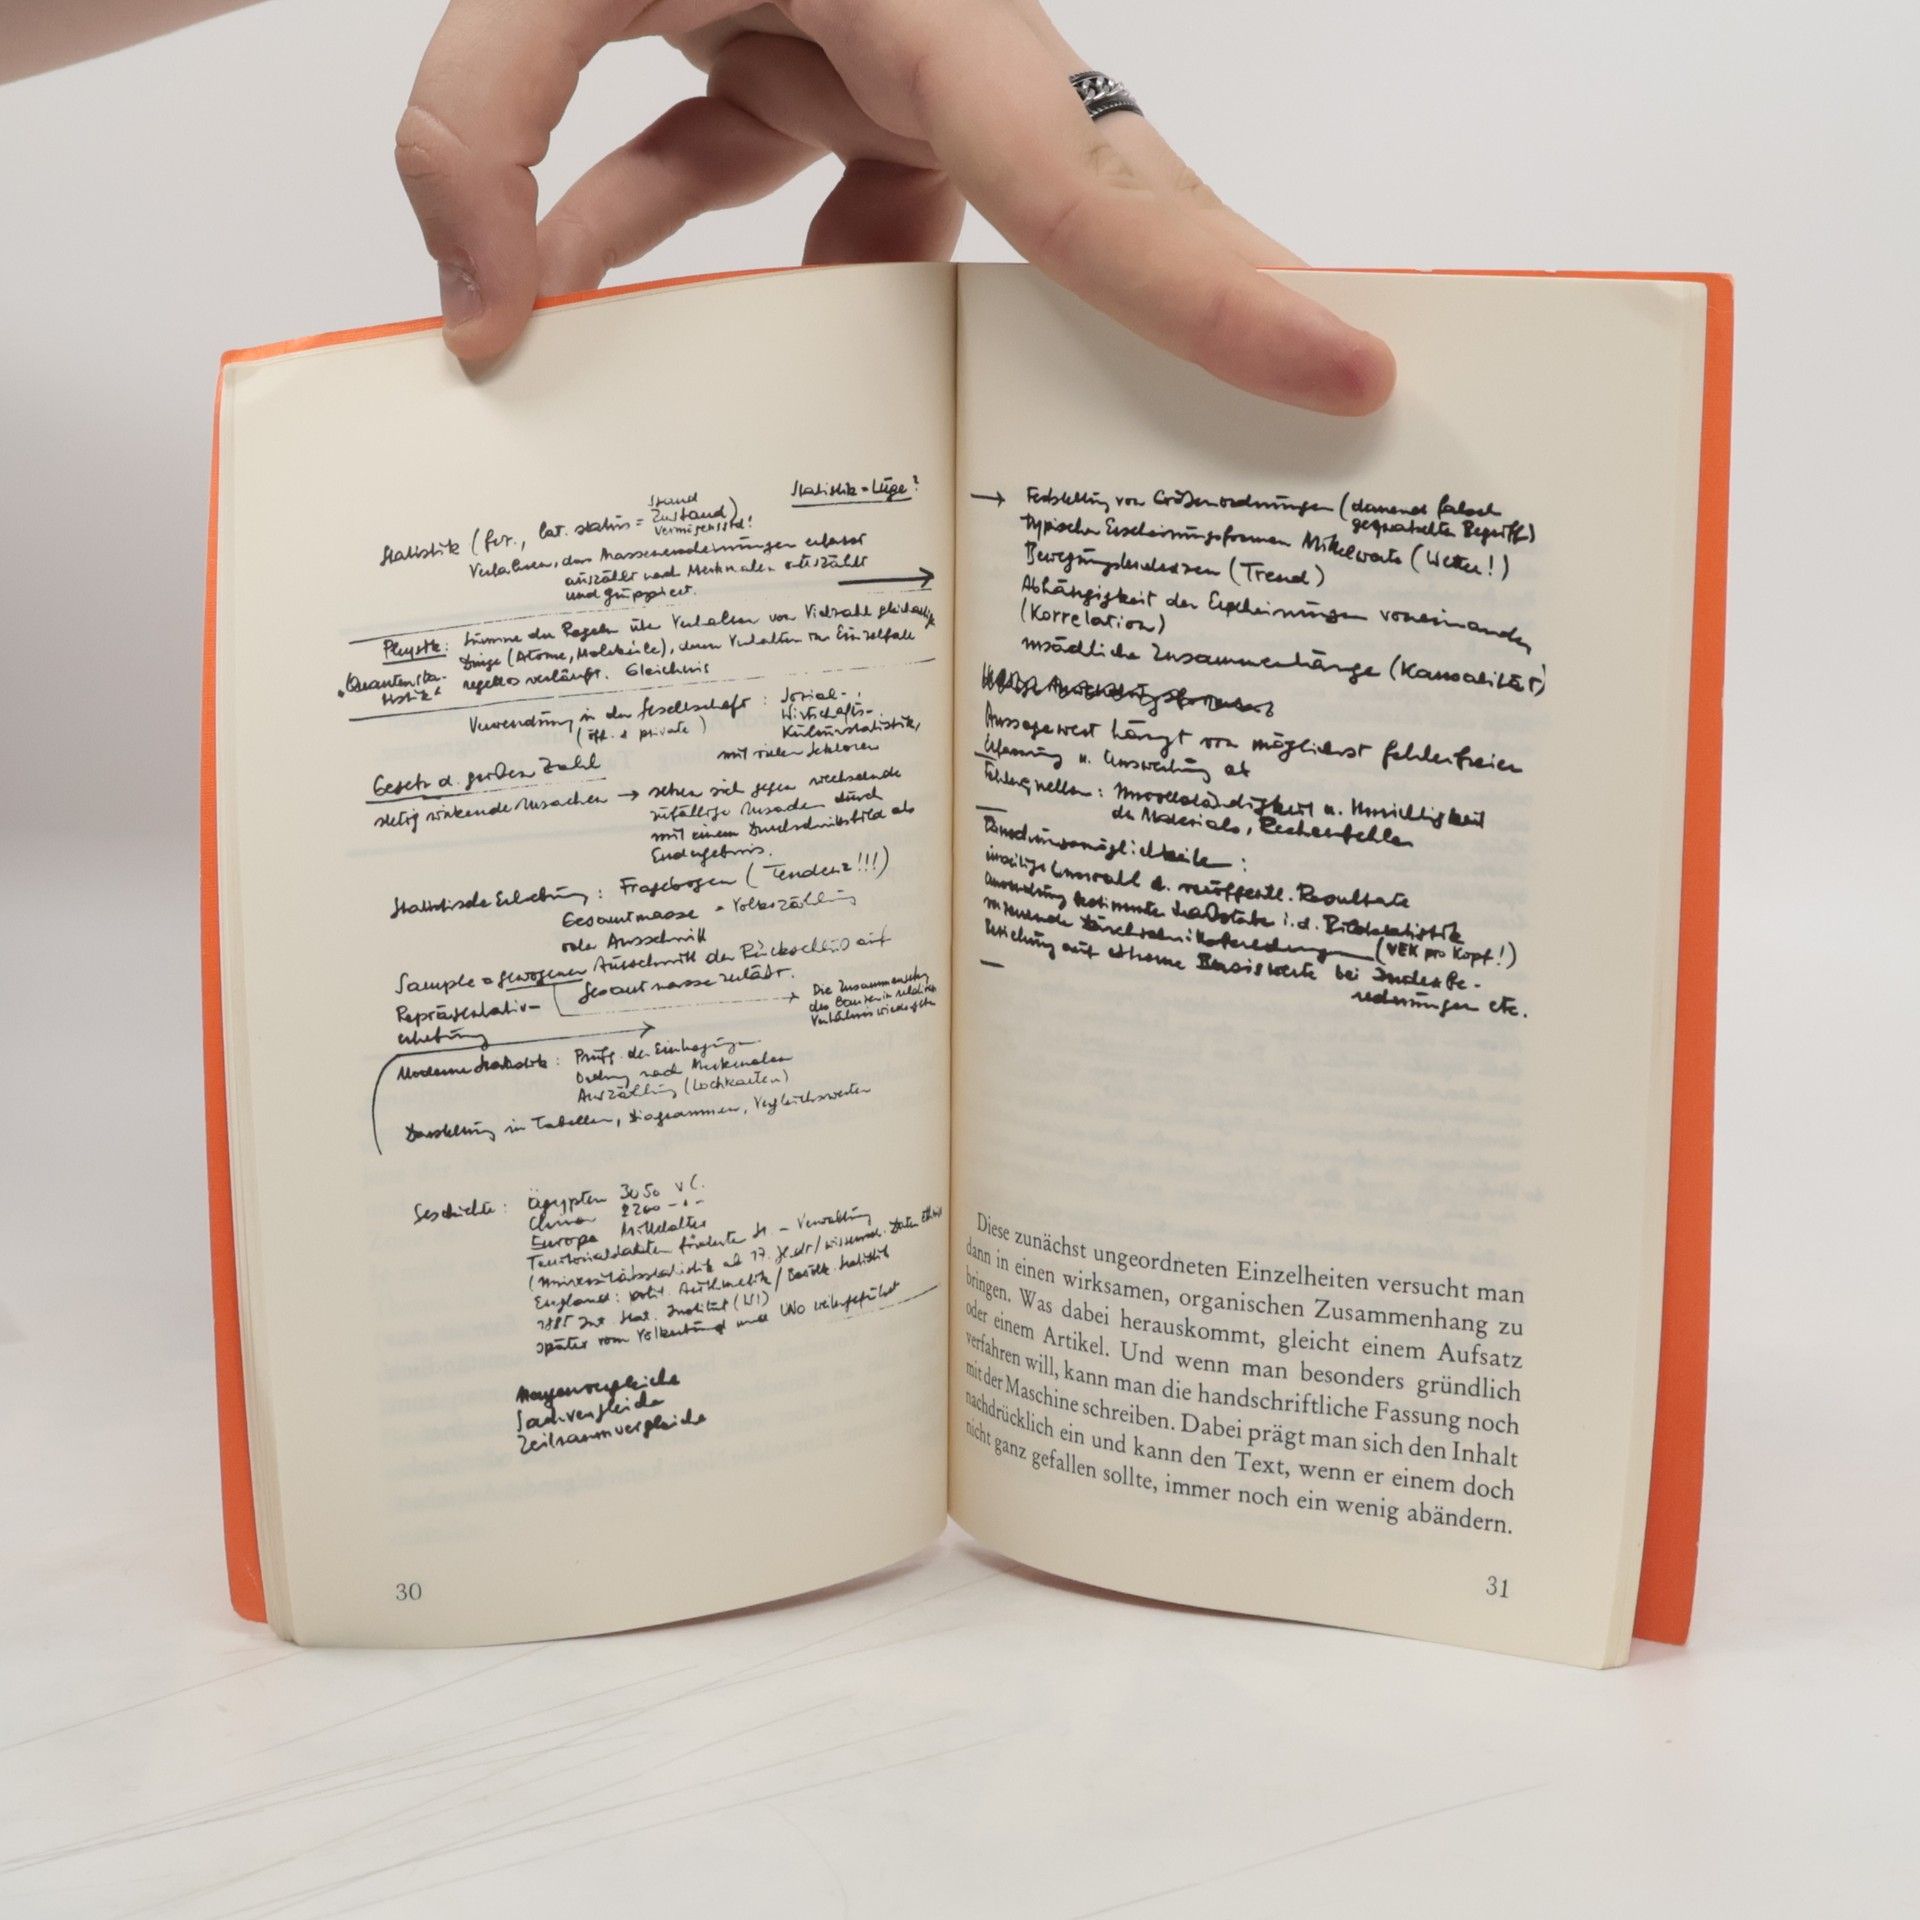 Statistik = Lüge?
Stand
Statistik (          , lat. status = Zustand)
Verfahren, das Massenerscheinungen erfasst
auszählt nach Merkmalen
und gruppiert.
Physik: Summe der Regeln über Verhalten von Vielzahl
Dinge (Atome, Moleküle), deren Verhalten im Einzelfall
"Quantensta-
tistik" regellos verläuft. Gleichnis
Verwendung in der Gesellschaft: Sozial-,
(öff. & private) Wirtschafts-,
Kulturstatistik,
mit vielen Sektoren
Gesetz d. großen Zahl
stetig wirkende Ursachen → setzen sich gegen wechselnde
zufällige Ursachen durch
mit einem Durchschnittsbild als
Endergebnis.
Statistische Erhebung: Fragebogen (Tendenz!!!)
Gesamtmasse = Volkszählung
oder Ausschnitt
Sample = gewogener Ausschnitt der Rückschluss auf
Gesamtmasse zulässt.
Repräsentativ-
erhebung
Die Zusammensetzg
des Ganzen in
Verhältnis
Moderne Statistik: Prüfg. der Eintragungen
Ordnung nach Merkmalen
Auszählung (Lochkarten)
Darstellung in Tabellen, Diagrammen, Vergleichswerten
Geschichte: Ägypten 3050 v C.
China 2200 -"-
Europa Mittelalter
Territorialstaaten förderte St. - Verwaltung
(Universitätsstatistik ab 17. Jhdt/
England: polit. Arithmetik / Statistik
1885 Int. Stat. Institut
später vom Völkerbund und UNO weitergeführt
Sachvergleiche
Zeitraumvergleiche
30
→ Feststellung von Größenordnungen (dauernd falsch
Begriff)
typischen Erscheinungsformen Mittelwerte (Wetter!)
Bewegungstendenzen (Trend)
Abhängigkeit der Erscheinungen voneinander
(Korrelation)
ursächliche Zusammenhänge (Kausalität)
Aussagewert hängt von möglichst fehlerfreier
Erfassung u. Auswertung ab
Fehlerquellen: Unvollständigkeit u. Unrichtigkeit
des Materials, Rechenfehler
Täuschungsmöglichkeiten:
einseitige Auswahl d. veröffentl. Resultate
Anwendung bestimmter Maßstäbe i.d. Bildstatistik
(VEK pro Kopf!)
Beziehung auf extreme Basiswerte bei Index Be-
rechnungen etc.
Diese zunächst ungeordneten Einzelheiten versucht man
dann in einen wirksamen, organischen Zusammenhang zu
bringen. Was dabei herauskommt, gleicht einem Aufsatz
oder einem Artikel. Und wenn man besonders gründlich
verfahren will, kann man die handschriftliche Fassung noch
mit der Maschine schreiben. Dabei prägt man sich den Inhalt
nachdrücklich ein und kann den Text, wenn er einem doch
nicht ganz gefallen sollte, immer noch ein wenig abändern.
31